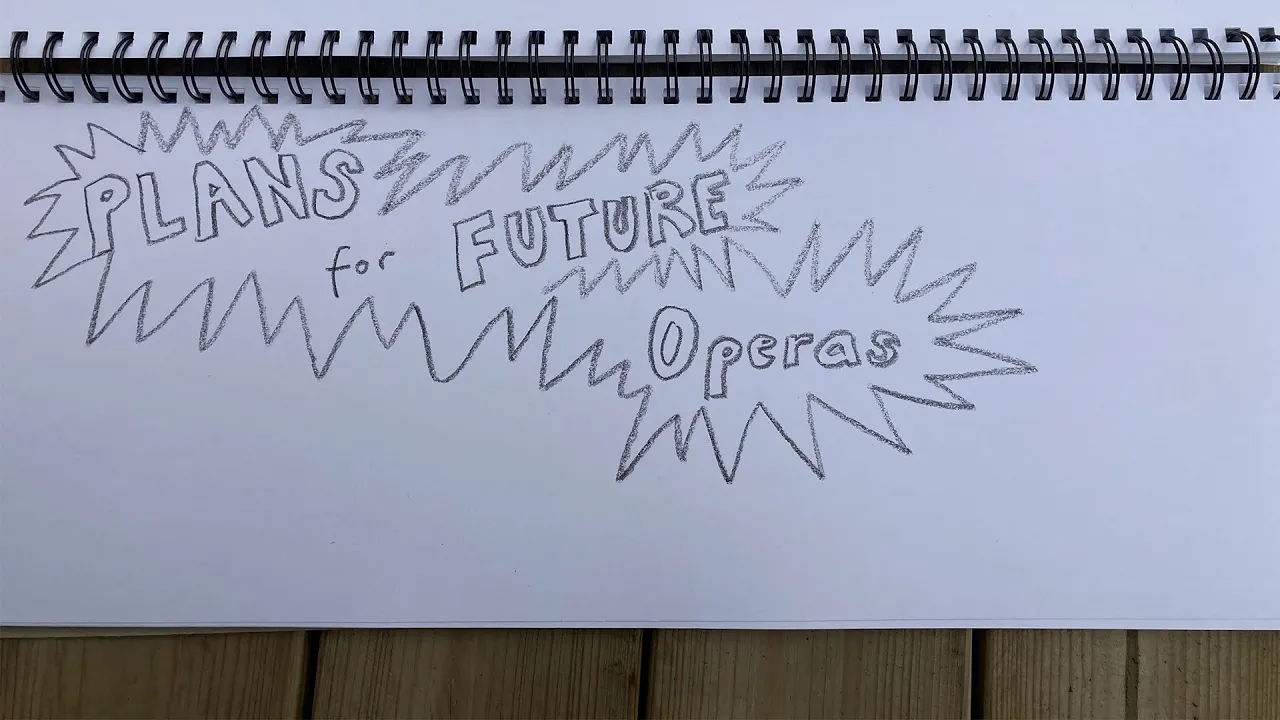 PLANS
for FUTURE
Operas